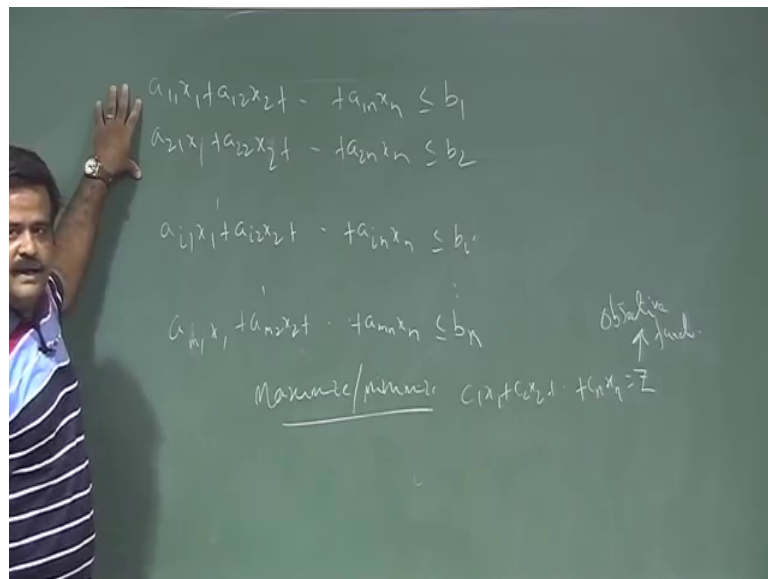 a₁₁x₁+a₁₂x₂+ - +a₁ₙxₙ ≤ b₁
a₂₁x₁+a₂₂x₂+ - +a₂ₙxₙ ≤ b₂
aᵢ₁x₁+aᵢ₂x₂+ - +aᵢₙxₙ ≤ bᵢ
aₘ₁x₁+aₘ₂x₂+ - +aₘₙxₙ ≤ bₙ
objective
Maximize/minimize c₁x₁+c₂x₂+ - +cₙxₙ=Z